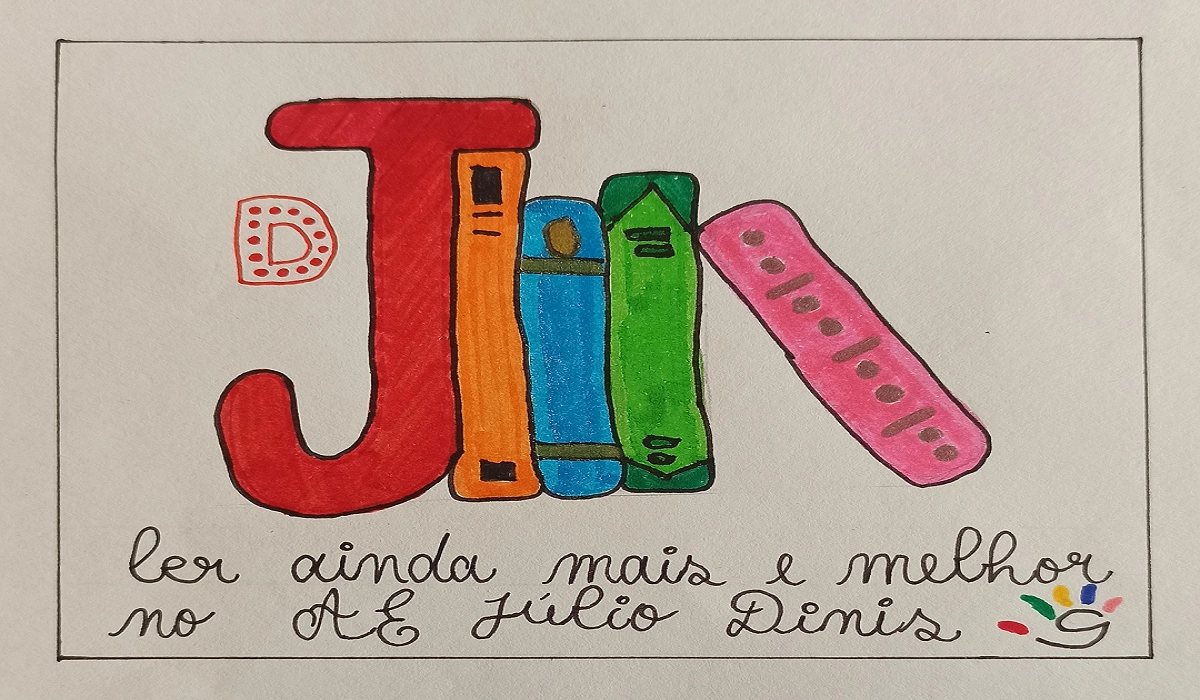 D
J
ler ainda mais e melhor
no AE Júlio Dinis